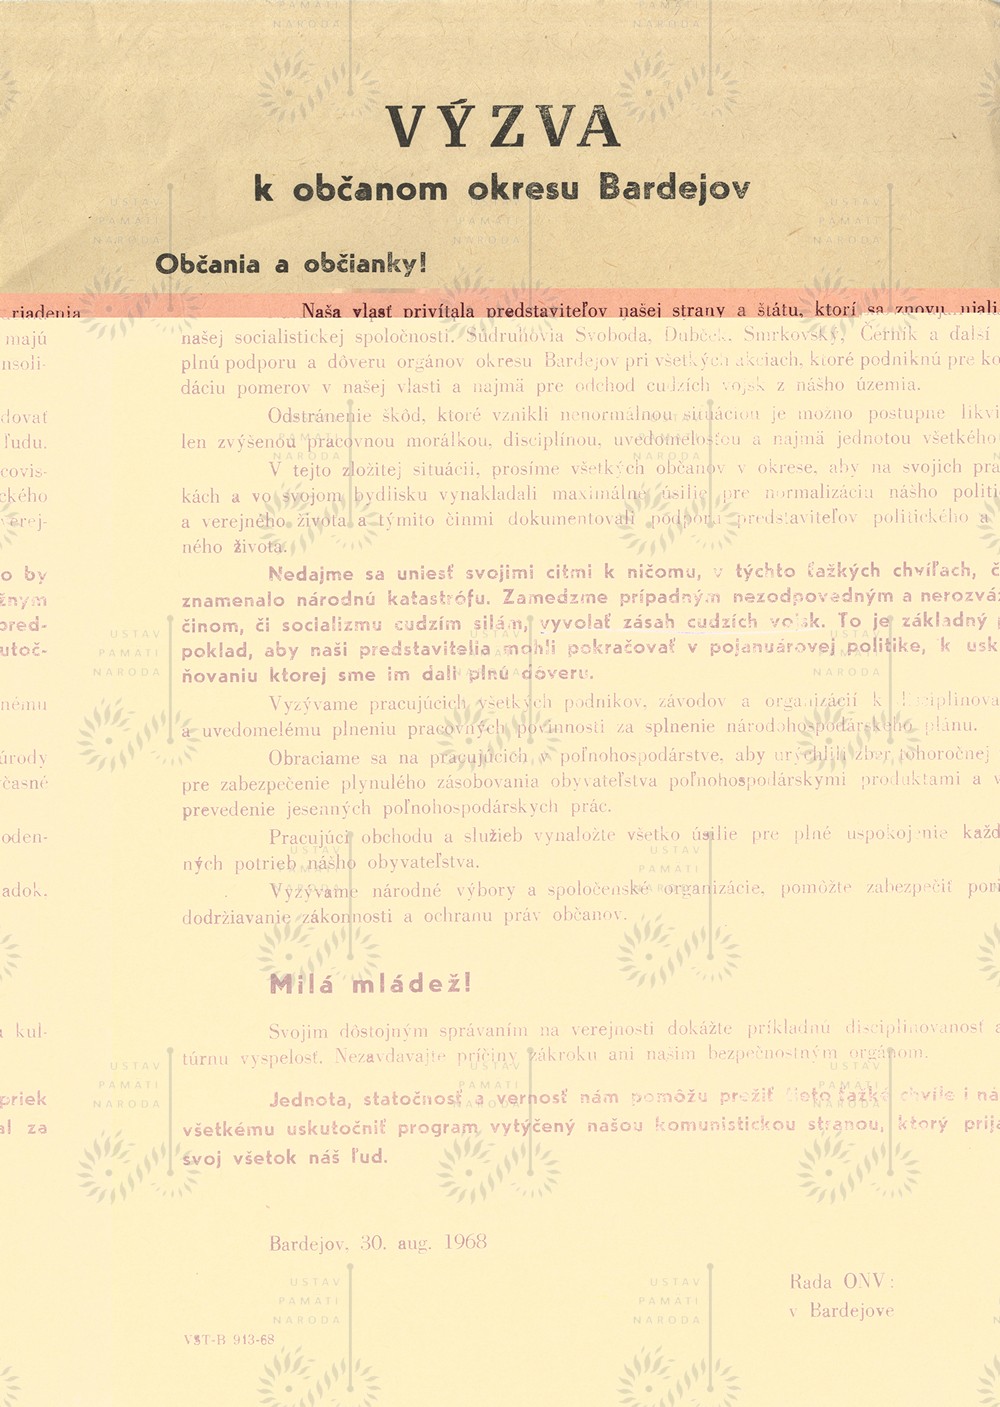 VÝZVA
k občanom okresu Bardejov
Občania a občianky!
Naša vlasť privítala predstaviteľov našej strany a štátu, ktorí sa znovu ujali riadenia
našej socialistickej spoločnosti. Súdruhovia Svoboda, Dubček, Smrkovský, Černík a ďalší majú
plnú podporu a dôveru orgánov okresu Bardejov pri všetkých akciach, ktoré podniknú pre konsoli-
dáciu pomerov v našej vlasti a najmä pre odchod cudzích vojsk z nášho územia.
Odstránenie škôd, ktoré vznikli nenormálnou situáciou je možno postupne likvidovať
len zvýšenou pracovnou morálkou, disciplínou, uvedomelosťou a najmä jednotou všetkého ľudu.
V tejto zložitej situácii, prosíme všetkých občanov v okrese, aby na svojich pracovis-
kách a vo svojom bydlisku vynakladali maximálne úsilie pre normalizáciu nášho politického
a verejného života a týmito činmi dokumentovali podporu predstaviteľov politického a verej-
ného života.
Nedajme sa uniesť svojimi citmi k ničomu, v týchto ťažkých chvíľach, čo by
znamenalo národnú katastrófu. Zamedzme prípadným nezodpovedným a nerozvážnym
činom, či socializmu cudzím silám, vyvolať zásah cudzích vojsk. To je základný pred-
poklad, aby naši predstavitelia mohli pokračovať v pojanuárovej politike, k uskutoč-
ňovaniu ktorej sme im dali plnú dôveru.
Vyzývame pracujúcich všetkých podnikov, závodov a organizácií k disciplinovanému
a uvedomelému plneniu pracovných povinností za splnenie národohospodárskeho plánu.
Obraciame sa na pracujúcich v poľnohospodárstve, aby urýchlili zber tohoročnej úrody
pre zabezpečenie plynulého zásobovania obyvateľstva poľnohospodárskymi produktami a včasné
prevedenie jesenných poľnohospodárskych prác.
Pracujúci obchodu a služieb vynaložte všetko úsilie pre plné uspokojenie každoden-
ných potrieb nášho obyvateľstva.
Vyzývame národné výbory a spoločenské organizácie, pomôžte zabezpečiť poriadok.
dodržiavanie zákonnosti a ochranu práv občanov.
Milá mládež!
Svojim dôstojným správaním na verejnosti dokážte príkladnú disciplinovanosť a kul-
túrnu vyspelosť. Nezavdavajte príčiny zákroku ani našim bezpečnostným orgánom.
Jednota, statočnosť a vernosť nám pomôžu prežiť tieto ťažké chvíle i napriek
všetkému uskutočniť program vytýčený našou komunistickou stranou, ktorý prijal za
svoj všetok náš ľud.
Bardejov, 30. aug. 1968
Rada ONV:
v Bardejove
VST-B 913-68